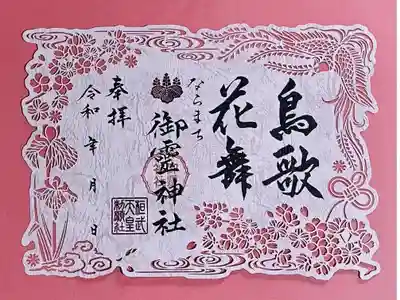 鳥歌
花舞
ならまち
御霊神社
奉拝
令和 年 月 日
桓武
天皇
勅願社